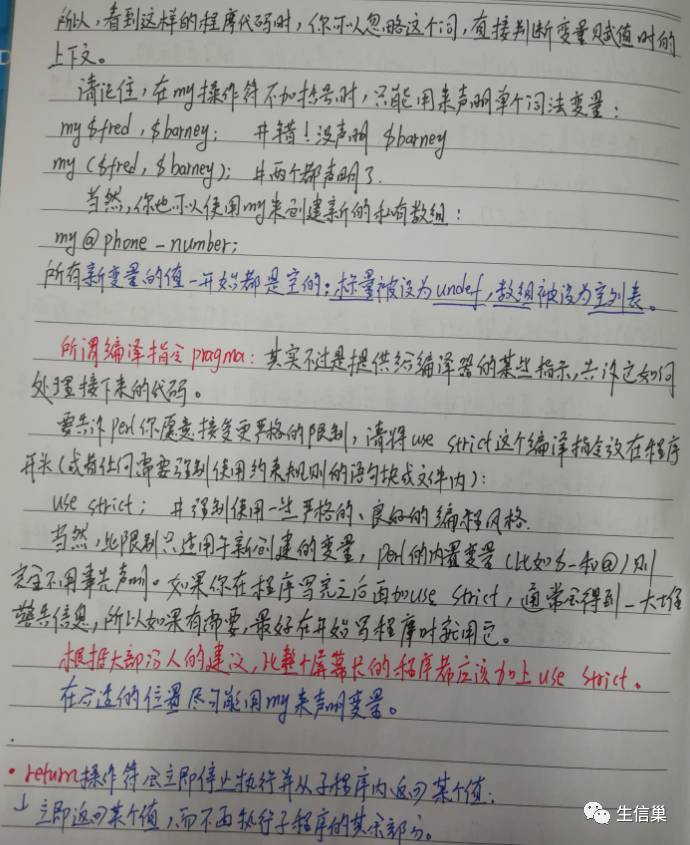 所以，看到这样的程序代码时，你可以忽略这个词，直接判断变量赋值时的
上下文。
请记住，在my操作符不加括号时，只能用来声明单个词法变量：
my $fred, $barney; #错！没声明 $barney
my ($fred, $barney); #两个都声明了.
当然，你也可以使用my来创建新的私有数组：
my @phone_number;
所有新变量的值一开始都是空的：标量被设为undef，数组被设为空列表。
所谓编译指令pragma：其实不过是提供给编译器的某些指示，告诉它如何
处理接下来的代码。
要告诉perl你愿意接受更严格的限制，请将use strict这个编译指令放在程序
开头（或者任何需要强制使用约束规则的语句块或文件内）：
use strict; #强制使用一些严格的、良好的编程风格.
当然，此限制只适用于新创建的变量，perl的内置变量（比如$_和@）则
完全不用事先声明。如果你在程序写完之后再加use strict，通常会得到一大堆
警告信息，所以如果有需要，最好在开始写程序时就用它。
根据大部分人的建议，比整个屏幕长的程序都应该加上use strict。
在合适的位置尽可能用my来声明变量。
• return操作符会立即停止执行并从子程序内返回某个值：
↓立即返回某个值，而不再执行子程序的其余部分。
生信巢